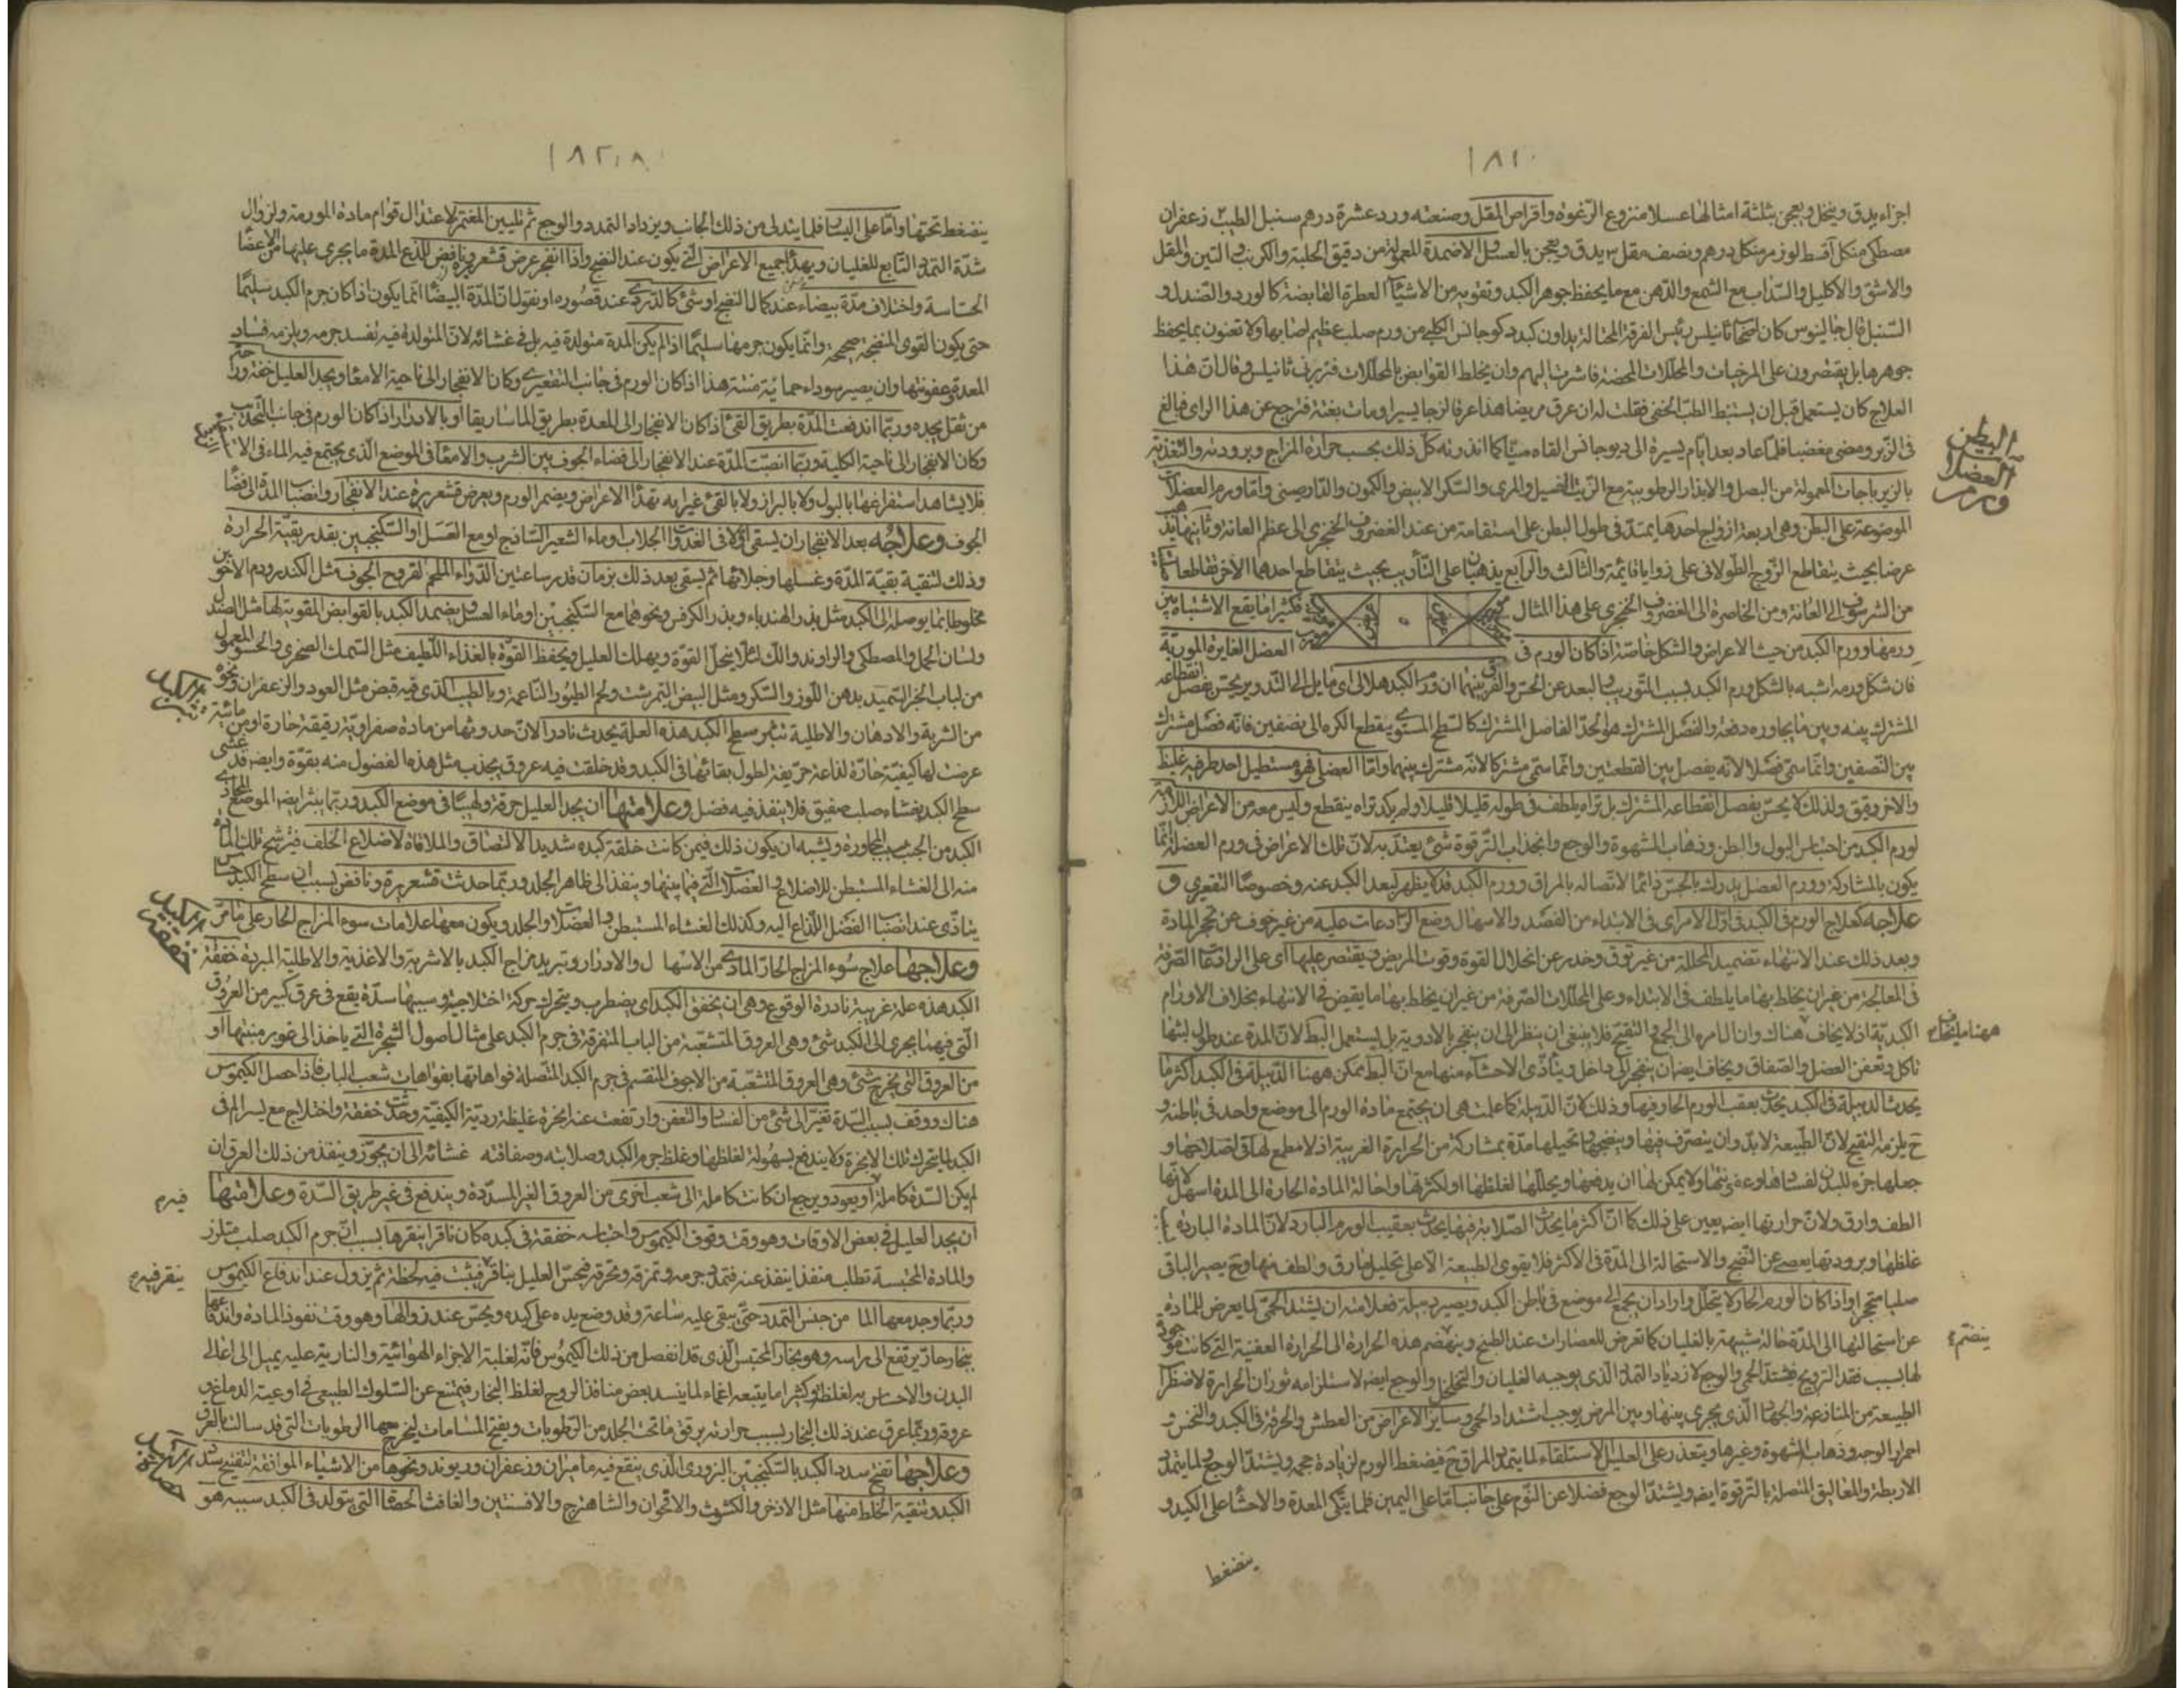 ١٨١
اجزاء يدق وينخل ويعجن بثلثة امثالها عسلا منزوع الرغوة واقراص المقل وصنعته ورد عشرة درهم سنبل الطيب ٢ زعفران
مصطكى من كل قسط لوز مر من كل درهم ونصف مقل ٣ يدق ويعجن بالعسل والاضمدة المعمولة من دقيق الحلبة والكرنب والتين والمقل
والاشق والاكليل والسذاب مع الشمع والدهن مع ما يحفظ جوهر الكبد وتقويه من الاشياء العطرة القابضة كالورد والصندل و
السنبل قال جالينوس كان رئيس الفرقة المحتالة يداون كبد من ورم صلب عظيم اصابها ولا تعنون بما يحفظ
جوهرها بل يقتصرون على المرخيات والمحللات المحضة فاشرت اليهم وان يخلط القوابض بالمحللات وقال ان هذا
العلاج كان يستعمل قبل ان يستنبط الطب الخفى فقلت له ان عرق مريضا هذا عرقا لزجا يسيرا ومات بغتة فترجع عن هذا الراى فبالغ
فى الزبر ومضى مغضبا فلما عاد بعد ايام يسيرة الى القاه ميتا كما انذرته كل ذلك بحسب حرارة المزاج وبرودته والتغذية
بالزيرباجات المعمولة من البصل والابزار الرطوبية مع الزيت الغسيل والمرى والسكر الابيض والكمون والدارصينى واما ورم العضلات
الموضوعة على البطن وهى اربعة ازواج احدها يمتد فى طول البطن على استقامة من عند الغضروف الخنجرى الى عظم العانة وثانيها
عرضا بحيث يتقاطع الزوج الطولانى على زوايا قائمة والثالث والرابع يذهبان على التأريب بحيث يتقاطع احدهما الاخر تقاطعا
من الشرسوف الى العانة ومن الخاصرة الى الغضروف الخنجرى على هذا المثال فكثيرا ما يقع الاشتباه بين
ورمها وورم الكبد من حيث الاعراض والشكل خاصة اذا كان الورم فى العضل الغايرة الموربة
فان شكل ورمه اشبه بالشكل ورم الكبد بسبب التوريب والبعد عن الحس والفرق بينهما ان ورم الكبد هلالى اى مايل الى التدوير يحس بفصل انقطاعه
المشترك بينه وبين ما يجاوره دفعة والفصل المشترك هو الحد الفاصل المشترك كالسطح المستوى يقطع الكرة الى نصفين فانه فصل مشترك
بين النصفين وانما سمى فصلا لانه يفصل بين القطعتين وانما سمى مشتركا لانه مشترك بينهما واما العضلى فهو مستطيل احد طرفيه غليظ
والاخر رقيق ولذلك لا يحس بفصل انقطاعه المشترك بل تراه يلطف فى طوله قليلا قليلا ولم يكد تراه ينقطع وليس معه من الاعراض اللازمة
لورم الكبد من احتباس البول والبطن وذهاب الشهوة والوجع وانجذاب الترقوة شئ يعتد به لان تلك الاعراض فى ورم العضلة انما
يكون بالمشاركة وورم العضل يدرك بالحس دائما لاتصاله بالمراق وورم الكبد قد لا يظهر لبعد الكبد عنه وخصوصا التقعيرى و
علاجه كعلاج الورم فى الكبد فى اول الامر اى فى الابتداء من الفصد والاسهال وضع الرادعات عليه من غير خوف عن تحجر المادة
وبعد ذلك عند الانتهاء تضميد المحللة من غير توق وحذر عن انحلال القوة وفوت المريض ويقتصر عليها اى على الرادعات الصرفة
فى المعالجة من غير ان يخلط بها ما يلطف فى الابتداء وعلى المحللات الصرفة من غير ان يخلط بها ما يقبض فى الانتهاء بخلاف الاورام
الكبدية اذ لا يخاف هناك وان ال امره الى الجمع والتقيح فلا ينبغى ان ينظر الى ان ينفجر بالادوية بل يستعمل البط لان المدة عند طول لبثها
تاكل وتعفن العضل والصفاق ويخاف ايضا ان ينفجر الى داخل ويتأذى الاحشاء منها مع ان البط ممكن ههنا الدبيلة فى الكبد اكثر ما
يحدث الدبيلة فى الكبد يحدث بعقب الورم الحار فيها وذلك لان الدبيلة كما علمت هى ان يجتمع مادة الورم الى موضع واحد فى باطنه و
ح يلزمه التقيح لان الطبيعة لابد وان يتصرف فيها وينضجها وتحيلها مدة بمشاركة من الحرارة الغريبة اذ لا مطمع لها فى اصلاحها و
جعلها جزء للبدن لفسادها وعفونتها ولا يمكن لها ان يدفعها ويحللها لغلظها او لكثرتها واحالة المادة الحارة الى المدة اسهل لانها
الطف وارق ولان حرارتها ايضا يعين على ذلك كما ان اكثر ما يحدث الصلابة فيها يحدث بعقيب الورم البارد لان المادة الباردة
غلظها وبرودتها يعصى عن النضج والاستحالة الى المدة فى الاكثر فلا يقوى الطبيعة الا على تحليل ما رق ولطف منها وح يصير الباقى
صلبا متحجرا واذا كان الورم الحار لا يتحلل واراد ان يجمع الى موضع فى باطن الكبد ويصير دبيلة فعلامته ان يشتد الحمى لما يعرض للمادة
عن استحالتها الى المدة حالة شبيهة بالغليان كما تعرض للعصارات عند الطبخ وينهضم هذه الحرارة الى الحرارة العفنية التى كانت موجودة
لها بسبب فقد الترويح فيشتد الحمى والوجع لازدياد التمدد الذى يوجبه الغليان والتخلخل والوجع ايضا لاستلزامه ثوران الحرارة لاضطرار
الطبيعة من المنازعة والجهاد الذى يجرى بينها وبين المرض يوجب اشتداد الحمى وساير الاعراض من العطش والحرقة فى الكبد والنخس و
احمرار الوجه وذهاب الشهوة وغيرها ويتعذر على العليل الاستلقاء لما يتمدد المراق ح فيضغط الورم لزيادة حجمه ويشتد الوجع لما يتمدد
الاربطة والمعاليق المتصلة بالترقوة ايضا ويشتد الوجع فضلا عن النوم على جانب اما على اليمين فلما يتكى المعدة والاحشاء على الكبد و
ينضغط
البطن
العضلا
ورم
ينضم
١٨٢
ينضغط تحتها واما على اليسار فلما يتدلى من ذلك الجانب ويزداد التمدد والوجع ثم تليين المغمز لاعتدال قوام مادة المورمة ولزوال
شدة التمدد التابع للغليان ويهدأ جميع الاعراض التى يكون عند النضج واذا انفجر عرض قشعريرة ونافض للذع المدة ما يجرى عليها من الاعضاء
الحساسة واختلاف مدة بيضاء عند كمال النضج او شئ كالدردى عند قصوره او نقول ان المدة البيضاء انما يكون اذا كان جرم الكبد سليما
حتى يكون القوى المنضجة صحيحة وانما يكون جرمها سليما اذا لم يكن المدة متولدة فيه بل فى غشائه لان المتولدة فيه تفسد جرمه ويلزمه فساد
المدة وعفونتها وان يصير سوداء حمائية منتنة هذا اذا كان الورم فى جانب التقعير وكان الانفجار الى ناحية الامعاء ويجد العليل خفة
من ثقل يجده وربما اندفعت المدة بطريق القئ اذا كان الانفجار الى المعدة بطريق الماساريقا او بالادرار اذا كان الورم فى جانب التحديب
وكان الانفجار الى ناحية الكلية وربما انصبت المدة عند الانفجار الى فضاء الجوف بين الثرب والامعاء فى الموضع الذى يجتمع فيه الماء فى الا
فلا يشاهد استفراغها بالبول ولا بالبراز ولا بالقئ غير انه تهدأ الاعراض ويضمر الورم ويعرض قشعريرة عند الانفجار وانصباب المدة الى فضاء
الجوف وعلاجه بعد الانفجار ان يسقى اولا فى الغدوات الجلاب او ماء الشعير الساذج او مع العسل او السكنجبين بقدر بقية الحرارة
وذلك لتنقية بقية المدة وغسلها وجلائها ثم يسقى بعد ذلك بزمان قدر ساعتين الدواء الملحم لقروح الجوف مثل الكندر ودم الاخوين
مخلوطا بما يوصله الى الكبد مثل بزر الهندباء وبزر الكرفس ونحوهما مع السكنجبين وماء العسل ويضمد الكبد بالقوابض المقوية لها مثل الصندل
ولسان الحمل والمصطكى والراوند واللك لئلا ينحل القوة ويهلك العليل ويحفظ القوة بالغذاء اللطيف مثل السمك الصخرى والحسو المعمول
من لباب الخبز السميد بدهن اللوز والسكر ومثل البيض النمرشت ولحم الطيور الناعمة وبالطيب الذى فيه قبض مثل العود والزعفران ونحوه
من الاشربة والادهان والاطلية تبثر سطح الكبد هذه العلة يحدث نادرا لان حدوثها من مادة صفراوية رقيقة حارة او من مائية
عرضت لها كيفية حادة لذاعة حريفة لطول بقائها فى الكبد وقد خلقت فيه عروق يجذب مثل هذه الفضول منه بقوة وايضا قد غشى
سطح الكبد بغشاء صلب صفيق فلا ينفذ فيه فضل وعلامتها ان يجد العليل حرقة ولهيبا فى موضع الكبد وربما يبثر ايضا الموضع المحاذى
الكبد من الجلد بسبب المجاورة ويشبه ان يكون ذلك فيمن كانت خلقة كبده شديد الالتصاق والملاقاة لاضلاع الخلف فيرشح تلك المادة
منه الى الغشاء المستبطن للاضلاع والعضلات التى فيما بينها وينفذ الى ظاهر الجلد وربما حدثت قشعريرة ونافض بسبب ان سطح الكبد حساس
يتأذى عند انصباب الفضل اللذاع اليه وكذلك الغشاء المستبطن والعضلات والجلد ويكون معها علامات سوء المزاج الحار على ما مر
وعلاجها علاج سوء المزاج الحار المادى من الاسهال والادرار وتبريد مزاج الكبد بالاشربة والاغذية والاطلية المبردة خفقة
الكبد هذه علة غريبة نادرة الوقوع وهى ان يخفق الكبد اى يضطرب ويتحرك حركة اختلاجية وسببها سدة يقع فى عرق كبير من العروق
التى فيها يجرى الى الكبد شئ وهى العروق المتشعبة من الباب المتفرقة فى جرم الكبد على مثال اصول الشجرة التى ياخذ الى غور منبتها او
من العروق التى يخرج شئ وهى العروق المتشعبة من الاجوف المنقسم فى جرم الكبد المتصلة فواهاتها بفواهات شعب الباب فاذا حصل الكيموس
هناك ووقف بسبب السدة تغير الى شئ من الفساد والتعفن وارتفعت عنه ابخرة غليظة ردية الكيفية وحدث خفقة واختلاج مع يسير الم فى
الكبد لما يتحرك تلك الابخرة ولا يندفع بسهولة لغلظها وغلظ جرم الكبد وصلابته وصفاقة غشائه الى ان يجوز وينفذ من ذلك العرق ان
لم يكن السدة كاملة او يعود ويرجع ان كانت كاملة الى شعب اخرى من العروق الغير المسددة ويندفع فى غير طريق السدة وعلامتها
ان يجد العليل فى بعض الاوقات وهو وقت وقوف الكيموس واحتباسه خفقة فى كبده كان ناقرا ينقرها بسبب ان جرم الكبد صلب متلزز
والمادة المحتبسة تطلب منفذا ينفذ عنه فتمدد جرمه وتمزقه وتخرقه فيحس العليل بناقر فيثبت فيه لحظة ثم يزول عند اندفاع الكيموس
وربما وجد معها الما من جنس التمدد حتى يبقى عليه ساعة وقد وضع يده على كبده ويحس عند زوالها وهو وقت نفوذ المادة واندفاعها
بخار حار يرتفع الى راسه وهو بخار المحتبس الذى قد انفصل من ذلك الكيموس فانه لغلبة الاجزاء الهوائية والنارية عليه يميل الى اعالى
البدن والاحساس به لغلظه وكثيرا ما يتبعه اغماء لما ينسد بعض منافذ الروح لغلظ البخار فيمتنع عن السلوك الطبيعى فى اوعية الدماغ و
عروقه وربما عرق عند ذلك البخار بسبب حرارته يرقق ما تحت الجلد من الرطوبات ويفتح المسامات ليخرج منها الرطوبات التى قد سالت بالعرق
وعلاجها تفتيح سدد الكبد بالسكنجبين البزورى الذى ينقع فيه ماميران وزعفران وريوند ونحوها من الاشياء الموافقة لتفتيح سدد
الكبد وتنقية الخلط منها مثل الاذخر والكشوث والاقحوان والشاهترج والافسنتين والغافت الحصاة التى يتولد فى الكبد سببه هو
تبثر الكبد
خفقة الكبد
فيه
ينقر فيه
حصاة الكبد